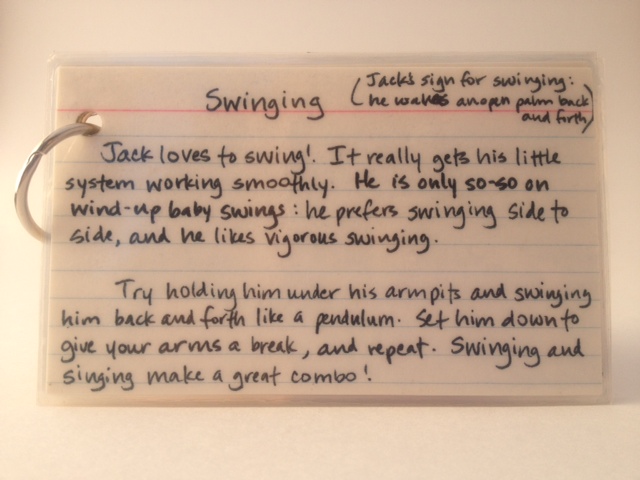 Swinging
(Jack's sign for swinging:
he waves an open palm back
and forth)
Jack loves to swing! It really gets his little
system working smoothly. He is only so-so on
wind-up baby swings: he prefers swinging side to
side, and he likes vigorous swinging.
Try holding him under his armpits and swinging
him back and forth like a pendulum. Set him down to
give your arms a break, and repeat. Swinging and
singing make a great combo!